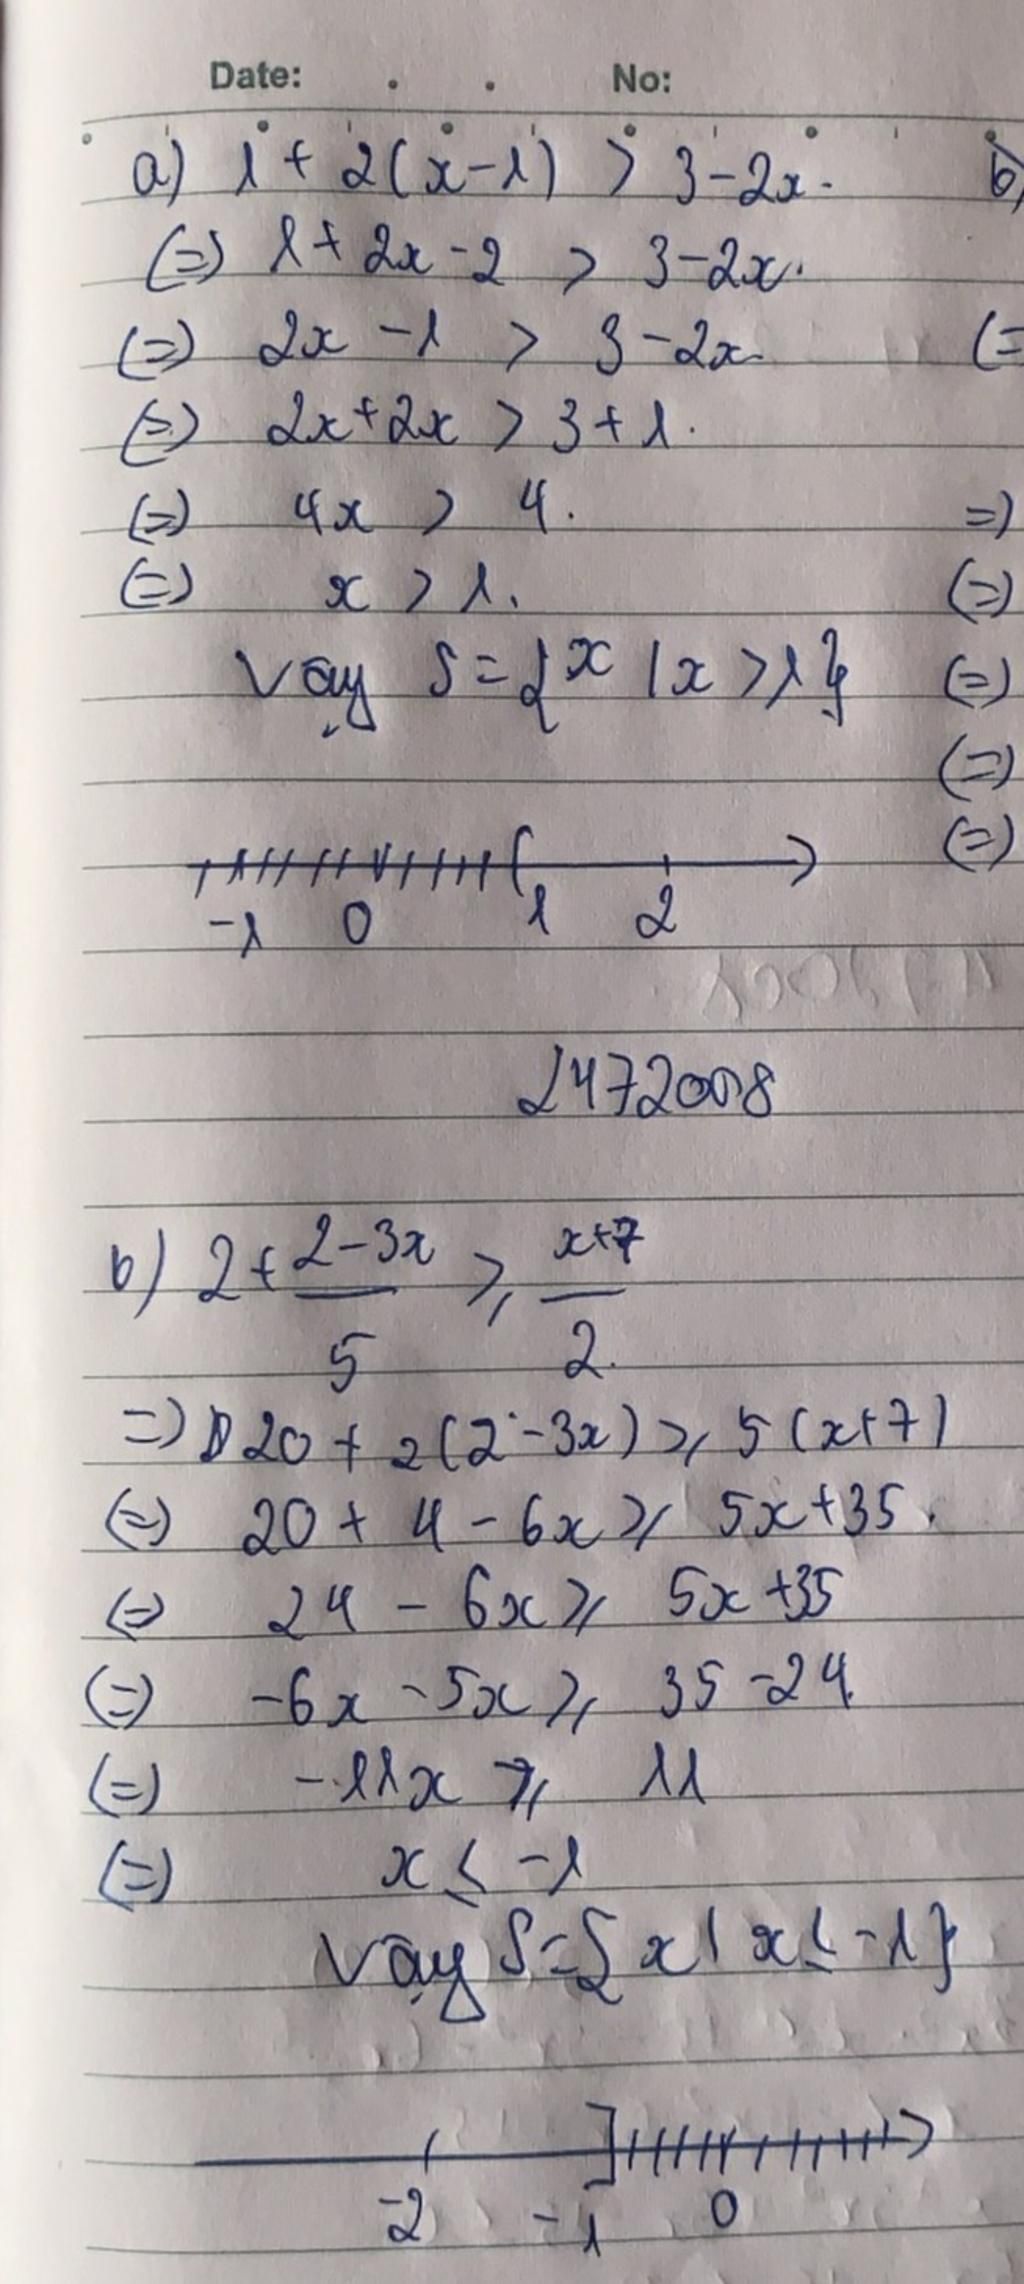 Date: . . No:
a) 1 + 2(x-1) > 3-2x. b)
(=) 1 + 2x - 2 > 3-2x.
(=) 2x - 1 > 3-2x (=
(=) 2x+2x > 3+1.
(=) 4x > 4. =)
(=) x > 1. (=)
Vậy S={x |x >1} (=)
(=)
(=)
-1 0 1 2
2472008
b) 2+ (2-3x)/5 ≥ (x+7)/2.
=) 20 + 2(2-3x) ≥ 5(x+7)
(=) 20 + 4 - 6x ≥ 5x+35.
(=) 24 - 6x ≥ 5x+35
(=) -6x -5x ≥ 35-24.
(=) -11x ≥ 11
(=) x ≤ -1
Vậy S={x| x≤ -1}
-2 -1 0